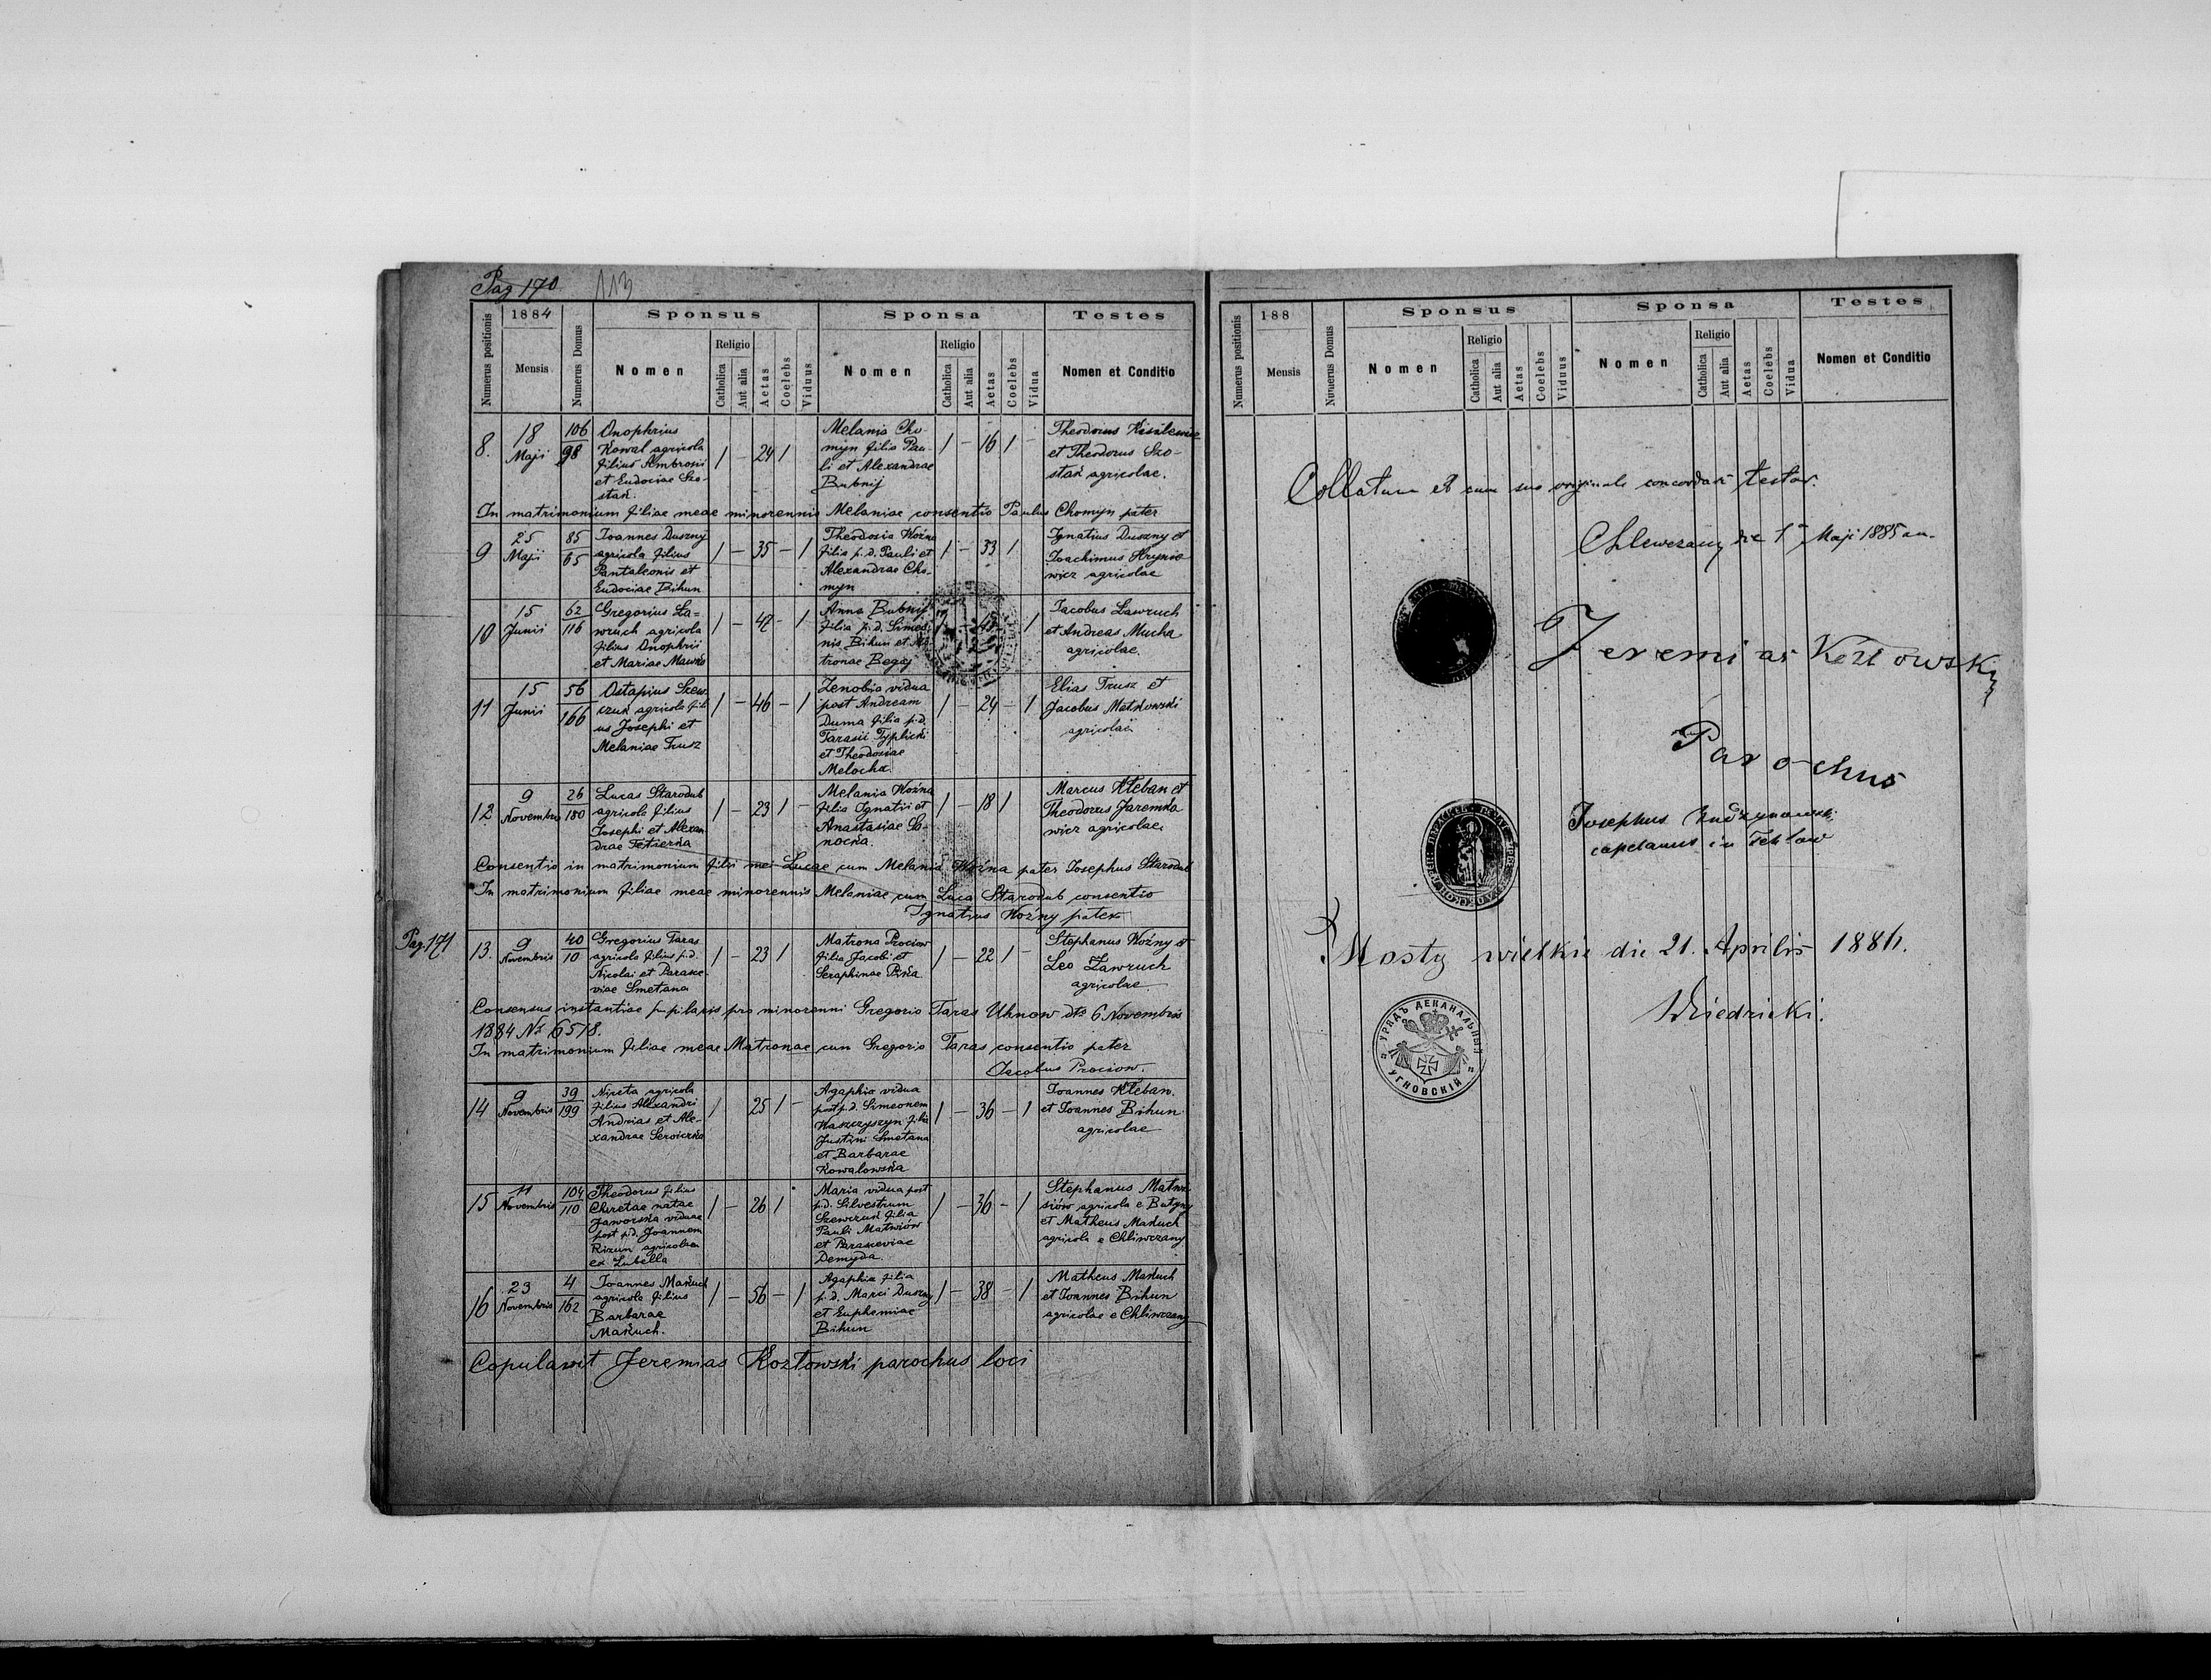 Pag 170 113
Numerus positionis
1884
Mensis
Numerus Domus
Sponsus
Nomen
Religio
Catholica
Aut alia
Aetas
Coelebs
Viduus
Sponsa
Nomen
Religio
Catholica
Aut alia
Aetas
Coelebs
Vidua
Testes
Nomen et Conditio
8.
18
Maji
106
98
Onophrius
Kowal agricola
filius Ambrosii
et Eudociae Szo-
stak.
1 – 24 1
Melania Cho-
myn filia Pau-
li et Alexandrae
Bubnij
1 – 16 1 –
Theodorus Kisilewicz
et Theodorus Szo-
stak agricolae.
In matrimonium filiae meae minorennis Melaniae consentio Paulus Chomyn pater
9
25
Maji
85
65
Joannes Duszny
agricola filius
Pantaleonis et
Eudociae Bihun
1 – 35 – 1
Theodosia Woźna
filia p.d. Pauli et
Alexandrae Cho-
myn
1 – 33 1
Ignatius Duszny et
Joachimus Hrynie
wicz agricolae
10
15
Junii
62
116
Gregorius Ła=
wruch agricola
filius Onophrii
et Mariae Mawko
1 – 42 – 1
Anna Bubnij
filia p.d. Simeo-
nis Bihun et Ma
tronae Begej
1
Jacobus Ławruch
et Andreas Mucha
agricolae.
11
15
Junii
56
166
Ostapius Szew
czuk agricola fili
us Josephi et
Melaniae Trusz
1 – 46 – 1
Zenobia vidua
post Andream
Duma filia p.d.
Tarasii Typlicki
et Theodosiae
Melocha.
1 – 24 – 1
Elias Trusz et
Jacobus Matkowski
agricolae
12
9
Novembris
26
180
Lucas Starodub
agricola filius
Josephi et Alexan
drae Tetierka
1 – 23 1 –
Melania Woźna
filia Ignatii et
Anastasiae Sa-
nocka.
1 – 18 1
Marcus Kłeban et
Theodorus Jaremko
wicz agricolae
Consentio in matrimonium filii mei Lucae cum Melania Woźna pater Josephus Starodub
In matrimonium filiae meae minorennis Melaniae cum Luca Starodub consentio
Ignatius Woźny pater
Pag. 171
13.
9
Novembris
40
10
Gregorius Taras
agricola filius p.d.
Nicolai et Parasce
viae Smetana
1 – 23 1
Matrona Prociow
filia Jacobi et
Seraphinae Pika
1 – 22 1 –
Stephanus Woźny et
Leo Ławruch
agricolae
Consensus instantiae pupilaris pro minorenni Gregorio Taras Uhnow dto 6 Novembris
1884 Nr 6518.
In matrimonium filiae meae Matronae cum Gregorio Taras consentio pater
Jacobus Prociow.
14
9
Novembris
39
199
Niceta agricola
filius Alexandri
Andrias et Ale-
xandrae Seroiczka
1 25 1 –
Agaphia vidua
post p.d. Simeonem
Waszczyszyn filia
Justini Smetana
et Barbarae
Kowalowska
1 – 36 – 1
Joannes Kłeban.
et Joannes Bihun
agricolae
15
11
Novembris
104
110
Theodorus filius
Chiretae natae
Jaworska viduae
post p.d. Joannem
Rizun agricolam
ex Lubella
1 – 26 1
Maria vidua post
p.d. Silvestrum
Szewczuk filia
Pauli Matwiow
et Parasceviae
Demyda.
1 – 36 – 1
Stephanus Matwi
siów agricola e Butyny
et Matheus Makuch
agricola e Chliwczany
16
23
Novembris
4
162
Joannes Makuch
agricola filius
Barbarae
Makuch.
1 – 56 – 1
Agaphia filia
p.d. Marci Duszny
et Euphemiae
Bihun
1 – 38 – 1
Matheus Makuch
et Joannes Bihun
agricolae e Chliwczany
Copulavit Jeremias Kozłowski parochus loci
Numerus positionis
188
Mensis
Nuuerus Domus
Sponsus
Nomen
Religio
Catholica
Aut alia
Aetas
Coelebs
Viduus
Sponsa
Nomen
Religio
Catholica
Aut alia
Aetas
Coelebs
Vidua
Testes
Nomen et Conditio
Collatum et cum suo originale concordare testor.
Chlewczany die 1 Maji 1885
Jeremias Kozłowsky
Parochus
Josephus
capelanus in
Mosty wielkie die 21. Aprilis 1886.
УРЯДЪ ДЕКАНАЛЬНЫЙ
УГНОВСКІЙ